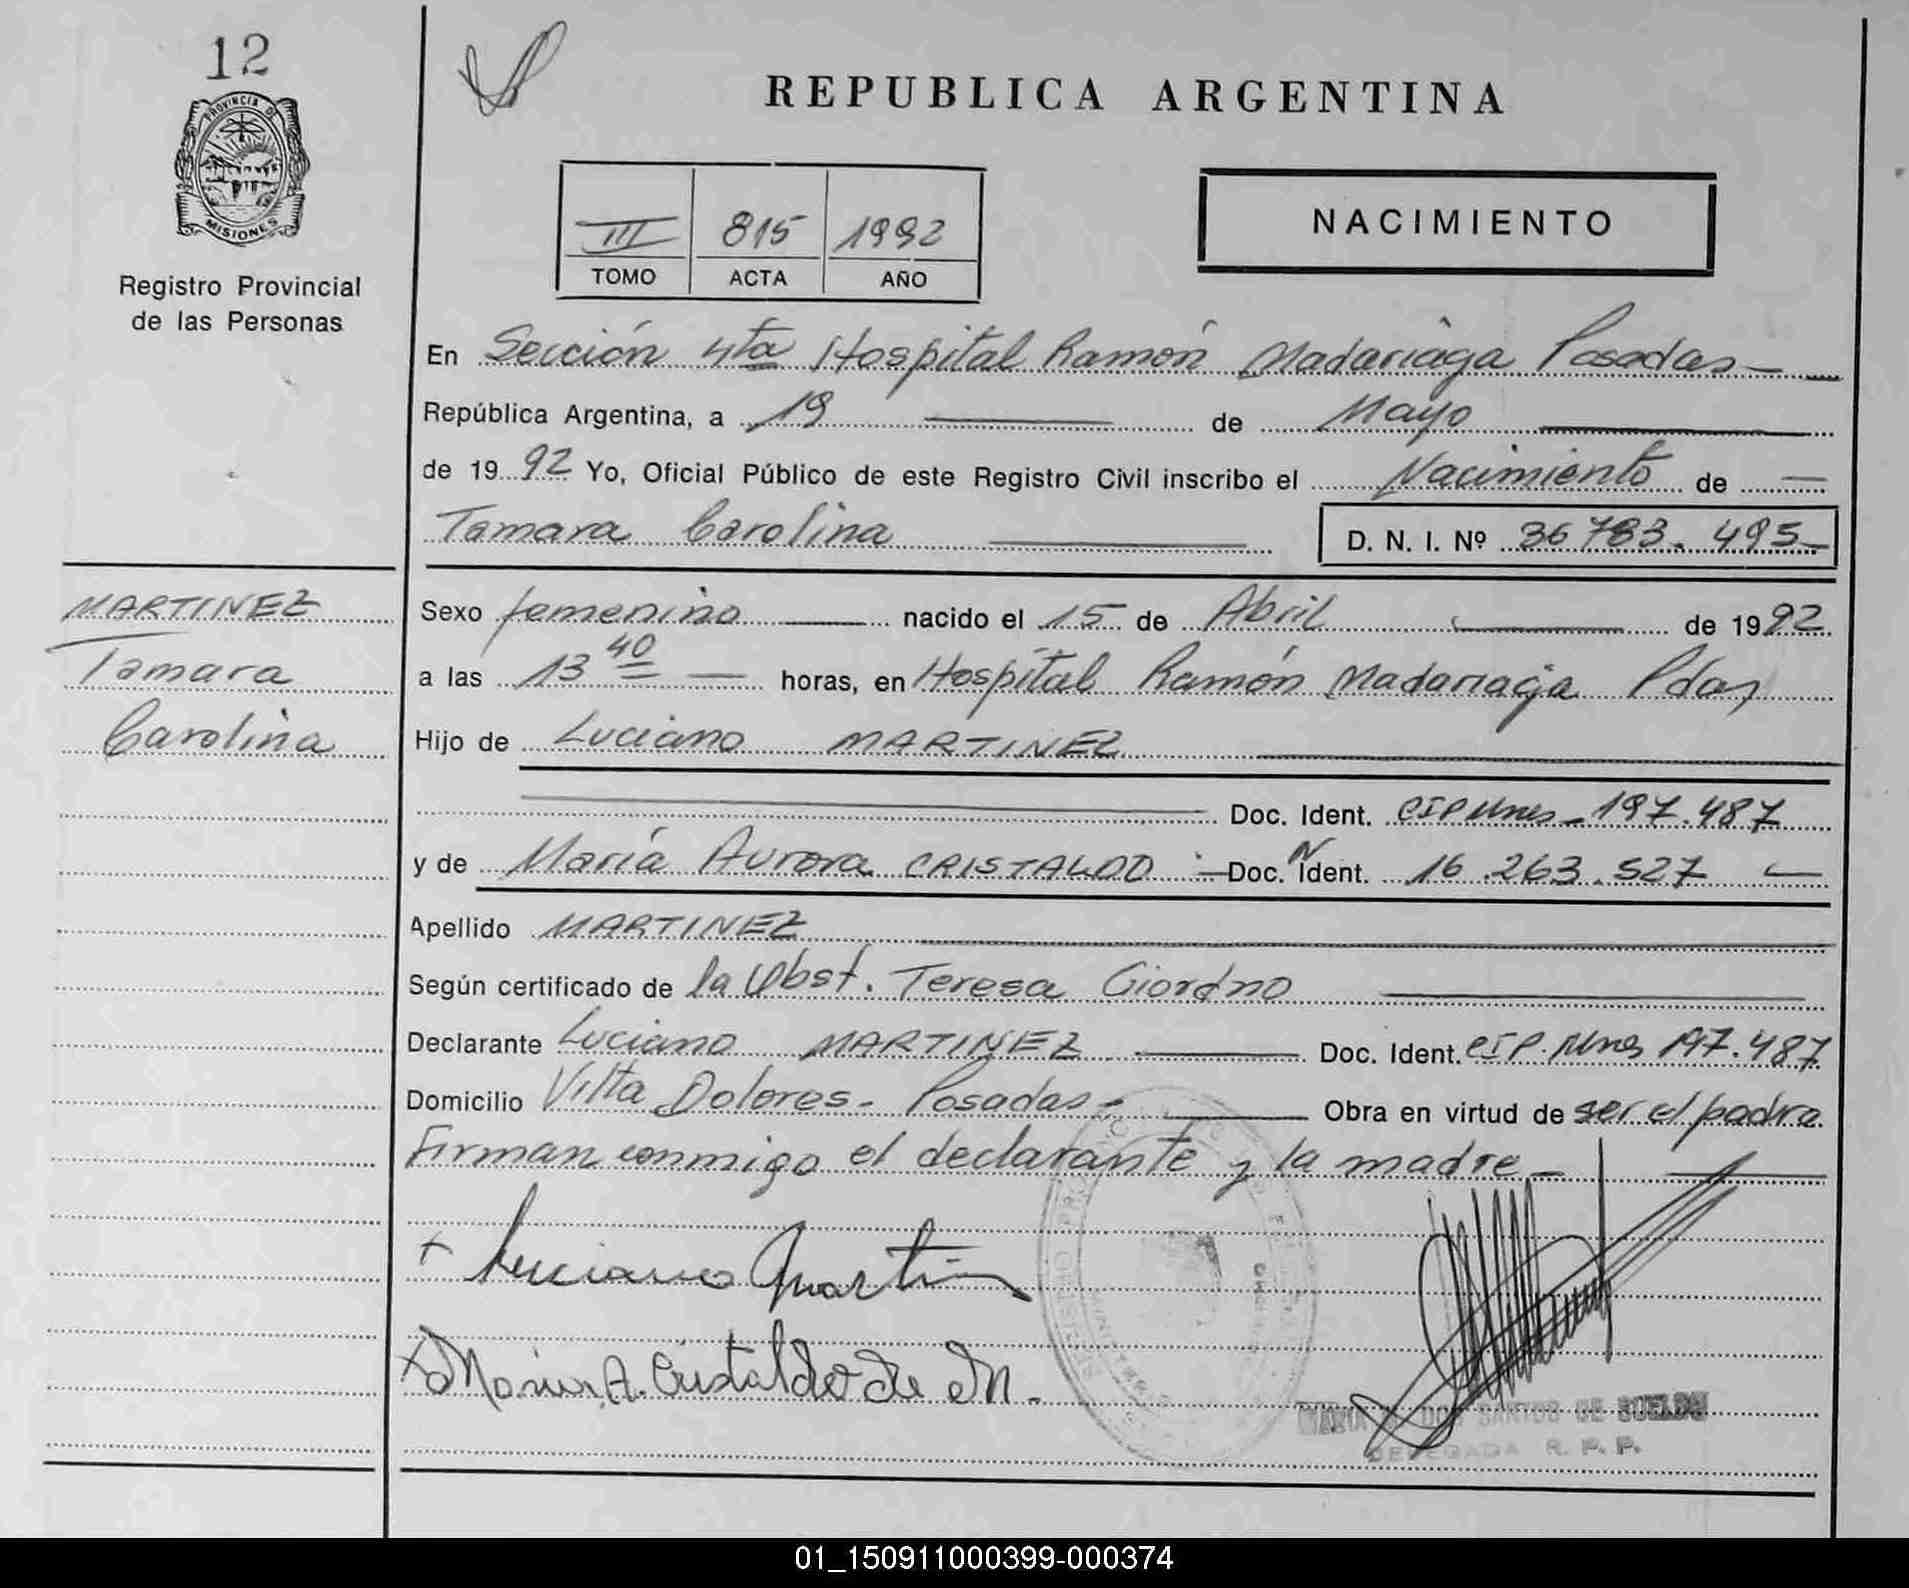 12
PROVINCIA DE
MISIONES
Registro Provincial
de las Personas
REPUBLICA ARGENTINA
III 815 1992
TOMO ACTA AÑO
NACIMIENTO
En Sección 4ta Hospital Ramón Madariaga Posadas
República Argentina, a 19 de Mayo
de 1992 Yo, Oficial Público de este Registro Civil inscribo el Nacimiento de
Tamara Carolina D. N. I. Nº 36783.495
MARTINEZ
Tamara
Carolina
Sexo femenino nacido el 15 de Abril de 1992
a las 13 40 horas, en Hospital Ramón Madariaga Pdas
Hijo de Luciano MARTINEZ
Doc. Ident. CIP Mnes 197.487
y de María Aurora CRISTALDO Doc. N Ident. 16.263.527
Apellido MARTINEZ
Según certificado de la Obst. Teresa Giordno
Declarante Luciano MARTINEZ Doc. Ident. CIP. Mnes 197.487
Domicilio Villa Dolores - Posadas - Obra en virtud de ser el padre
Firman conmigo el declarante y la madre
Luciano Martin
Maria A. Cristaldo de M.
DOS SANTOS DE
DELEGADA R. P. P.
01_150911000399-000374